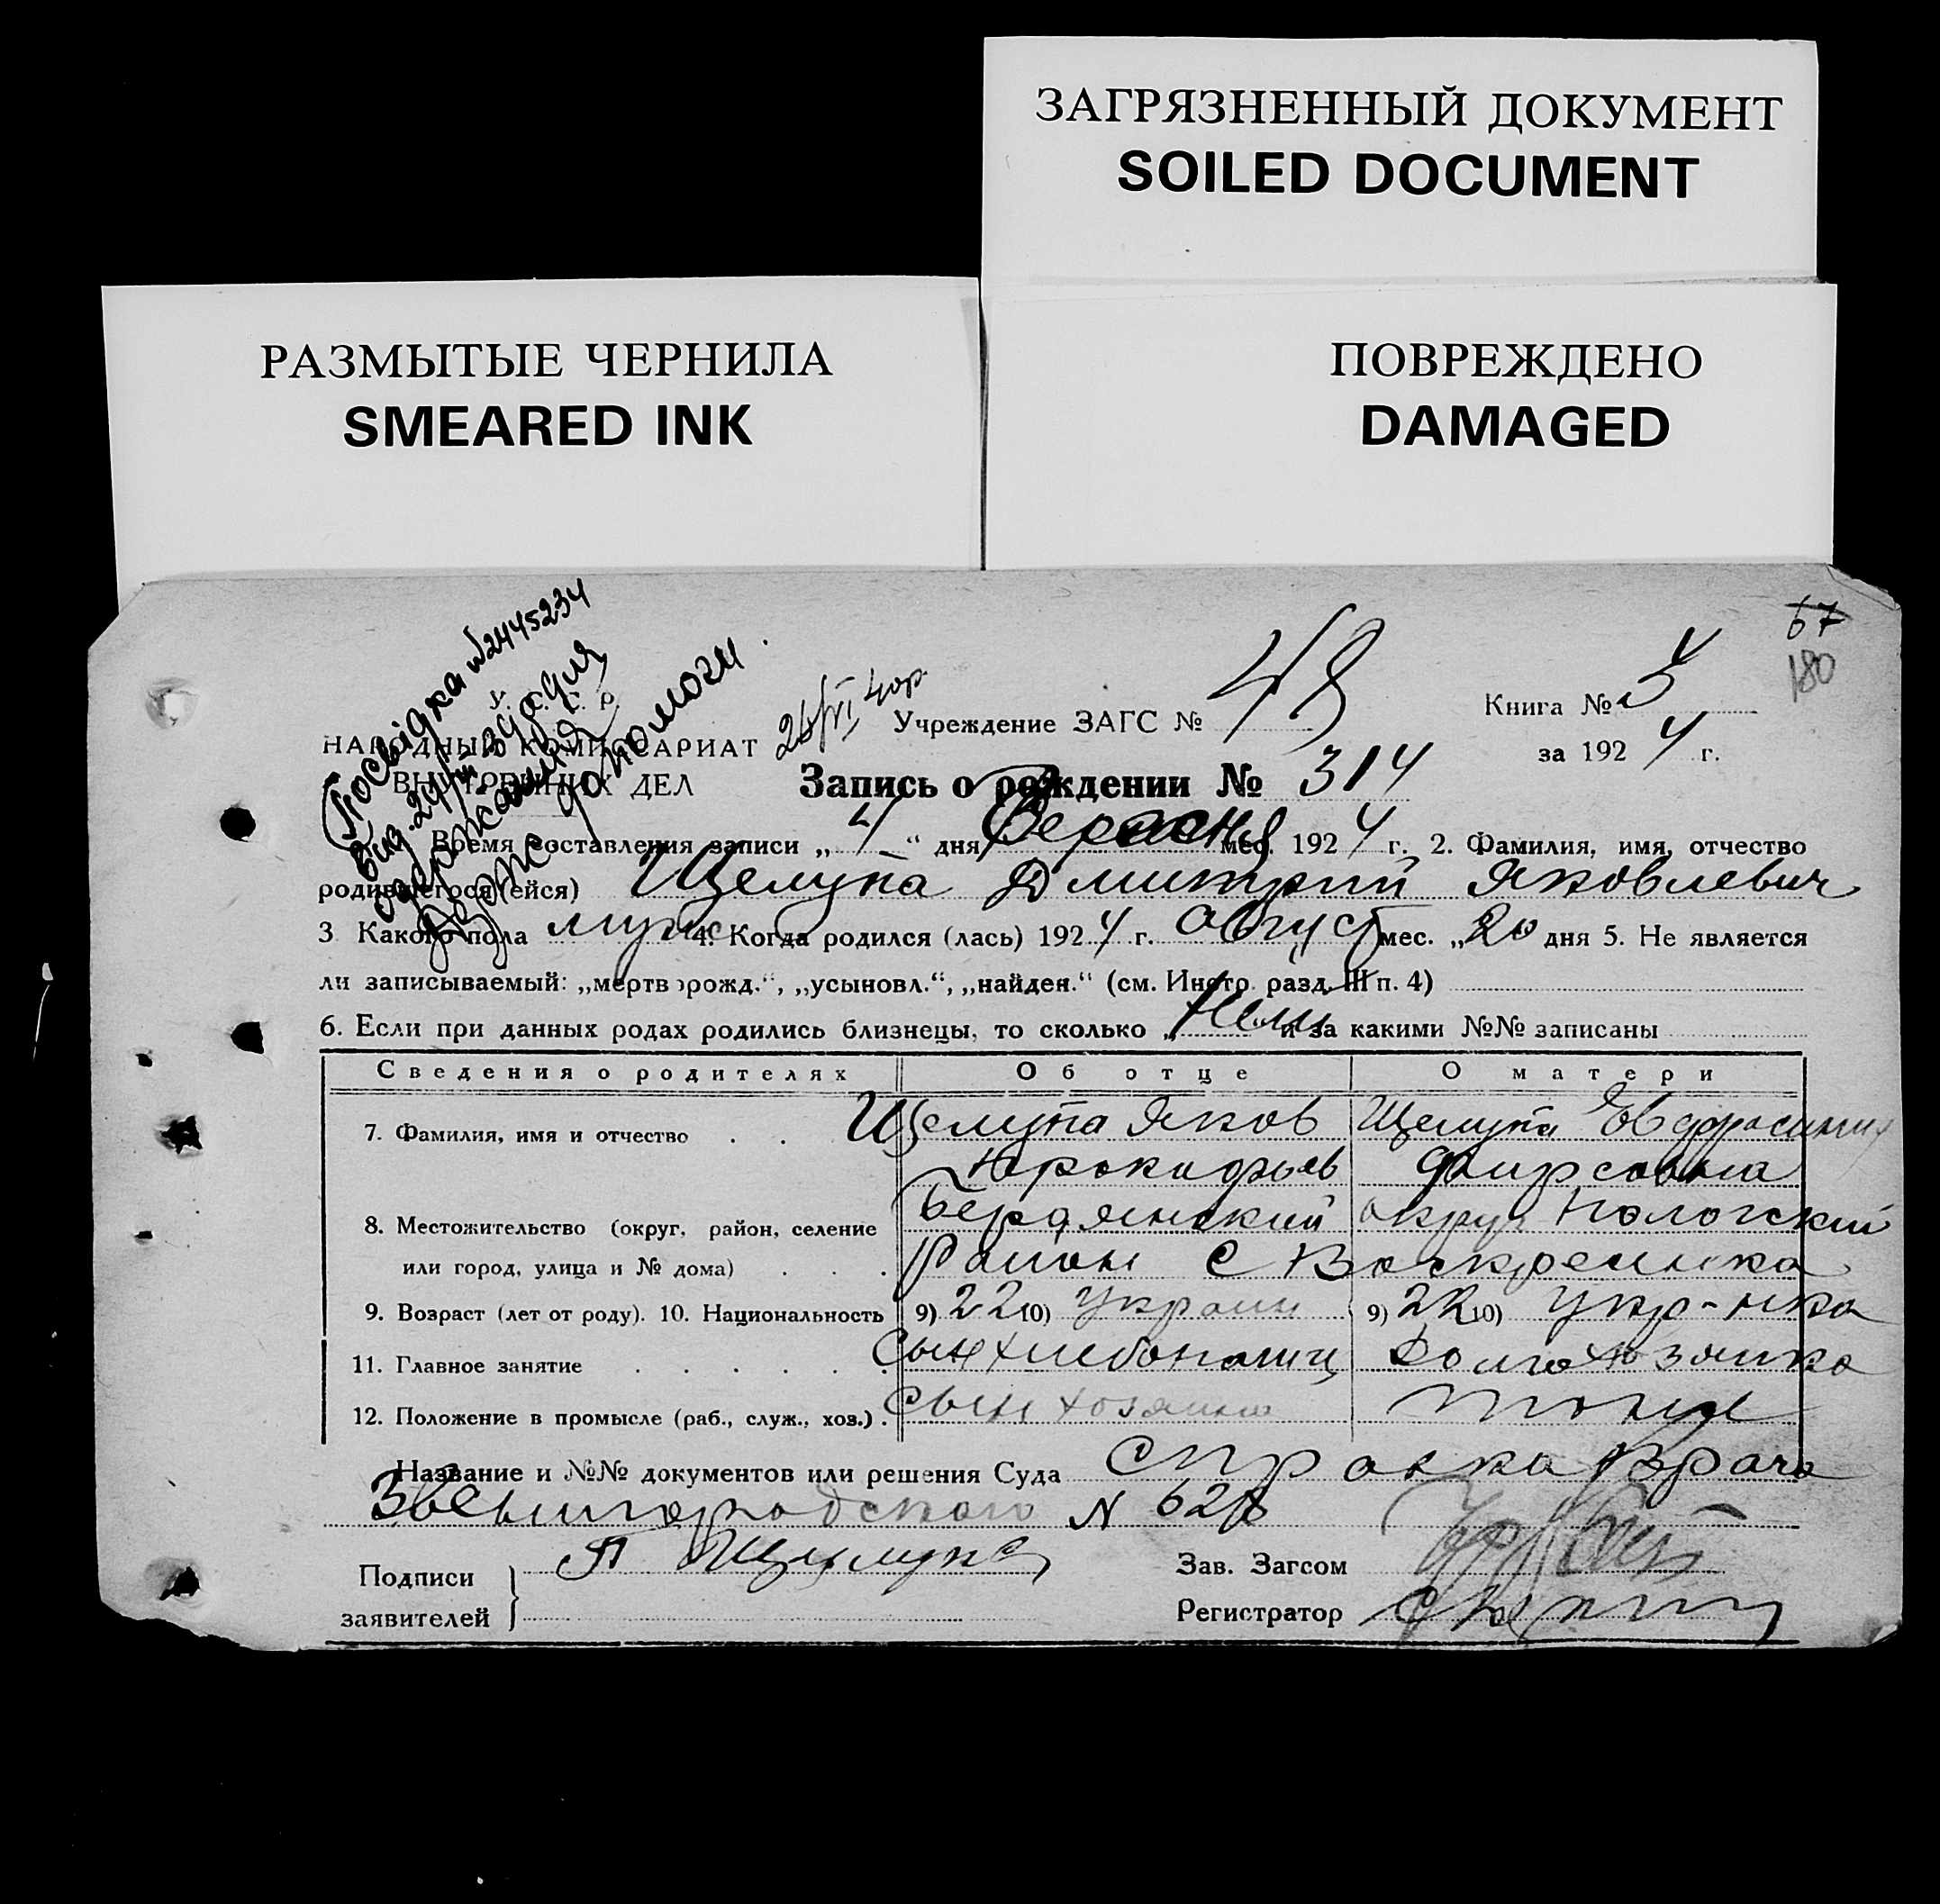 ЗАГРЯЗНЕННЫЙ ДОКУМЕНТ
SOILED DOCUMENT
РАЗМЫТЫЕ ЧЕРНИЛА
SMEARED INK
ПОВРЕЖДЕНО
DAMAGED
67
180
Посвідка №2445234
Вид. 29/ 39 а для
одержання
держ допомоги.
У. С. С. Р.
НАРОДНЫЙ КОМИССАРИАТ
ВНУТРЕННИХ ДЕЛ
26/VI 40р.
Учреждение ЗАГС № 48
Книга № 3
за 1924 г.
Запись о рождении № 314
Время составления записи „4“ дня Вересня мес. 1924 г. 2. Фамилия, имя, отчество
родившегося (ейся) Щелупа Дмитрий Яковлевич
3. Какого пола муж 4. Когда родился (лась) 1924 г. Август мес. „20 дня 5. Не является
ли записываемый: „мертворожд.“, „усыновл.“, „найден.“ (см. Инстр. разд. III п. 4)
6. Если при данных родах родились близнецы, то сколько „ и за какими №№ записаны
Сведения о родителях Об отце О матери
7. Фамилия, имя и отчество . . Щелупа Яков Щелупа Евфросиния
Прокофьев Фирсовна
8. Местожительство (округ, район, селение Бердянский округ Пологский
или город, улица и № дома) . . . Район с Воскресенка
9. Возраст (лет от роду). 10. Национальность 9) 22 10) Украин 9) 22 10) Укр-нка
11. Главное занятие . . . . . Сын хлебопашц Домохозяйка
12. Положение в промысле (раб., служ., хоз.) . Сын хозяина
Название и №№ документов или решения Суда Справка Врача
Звенигородского N 628
Подписи
заявителей
П Щелупа
Зав. Загсом
Регистратор